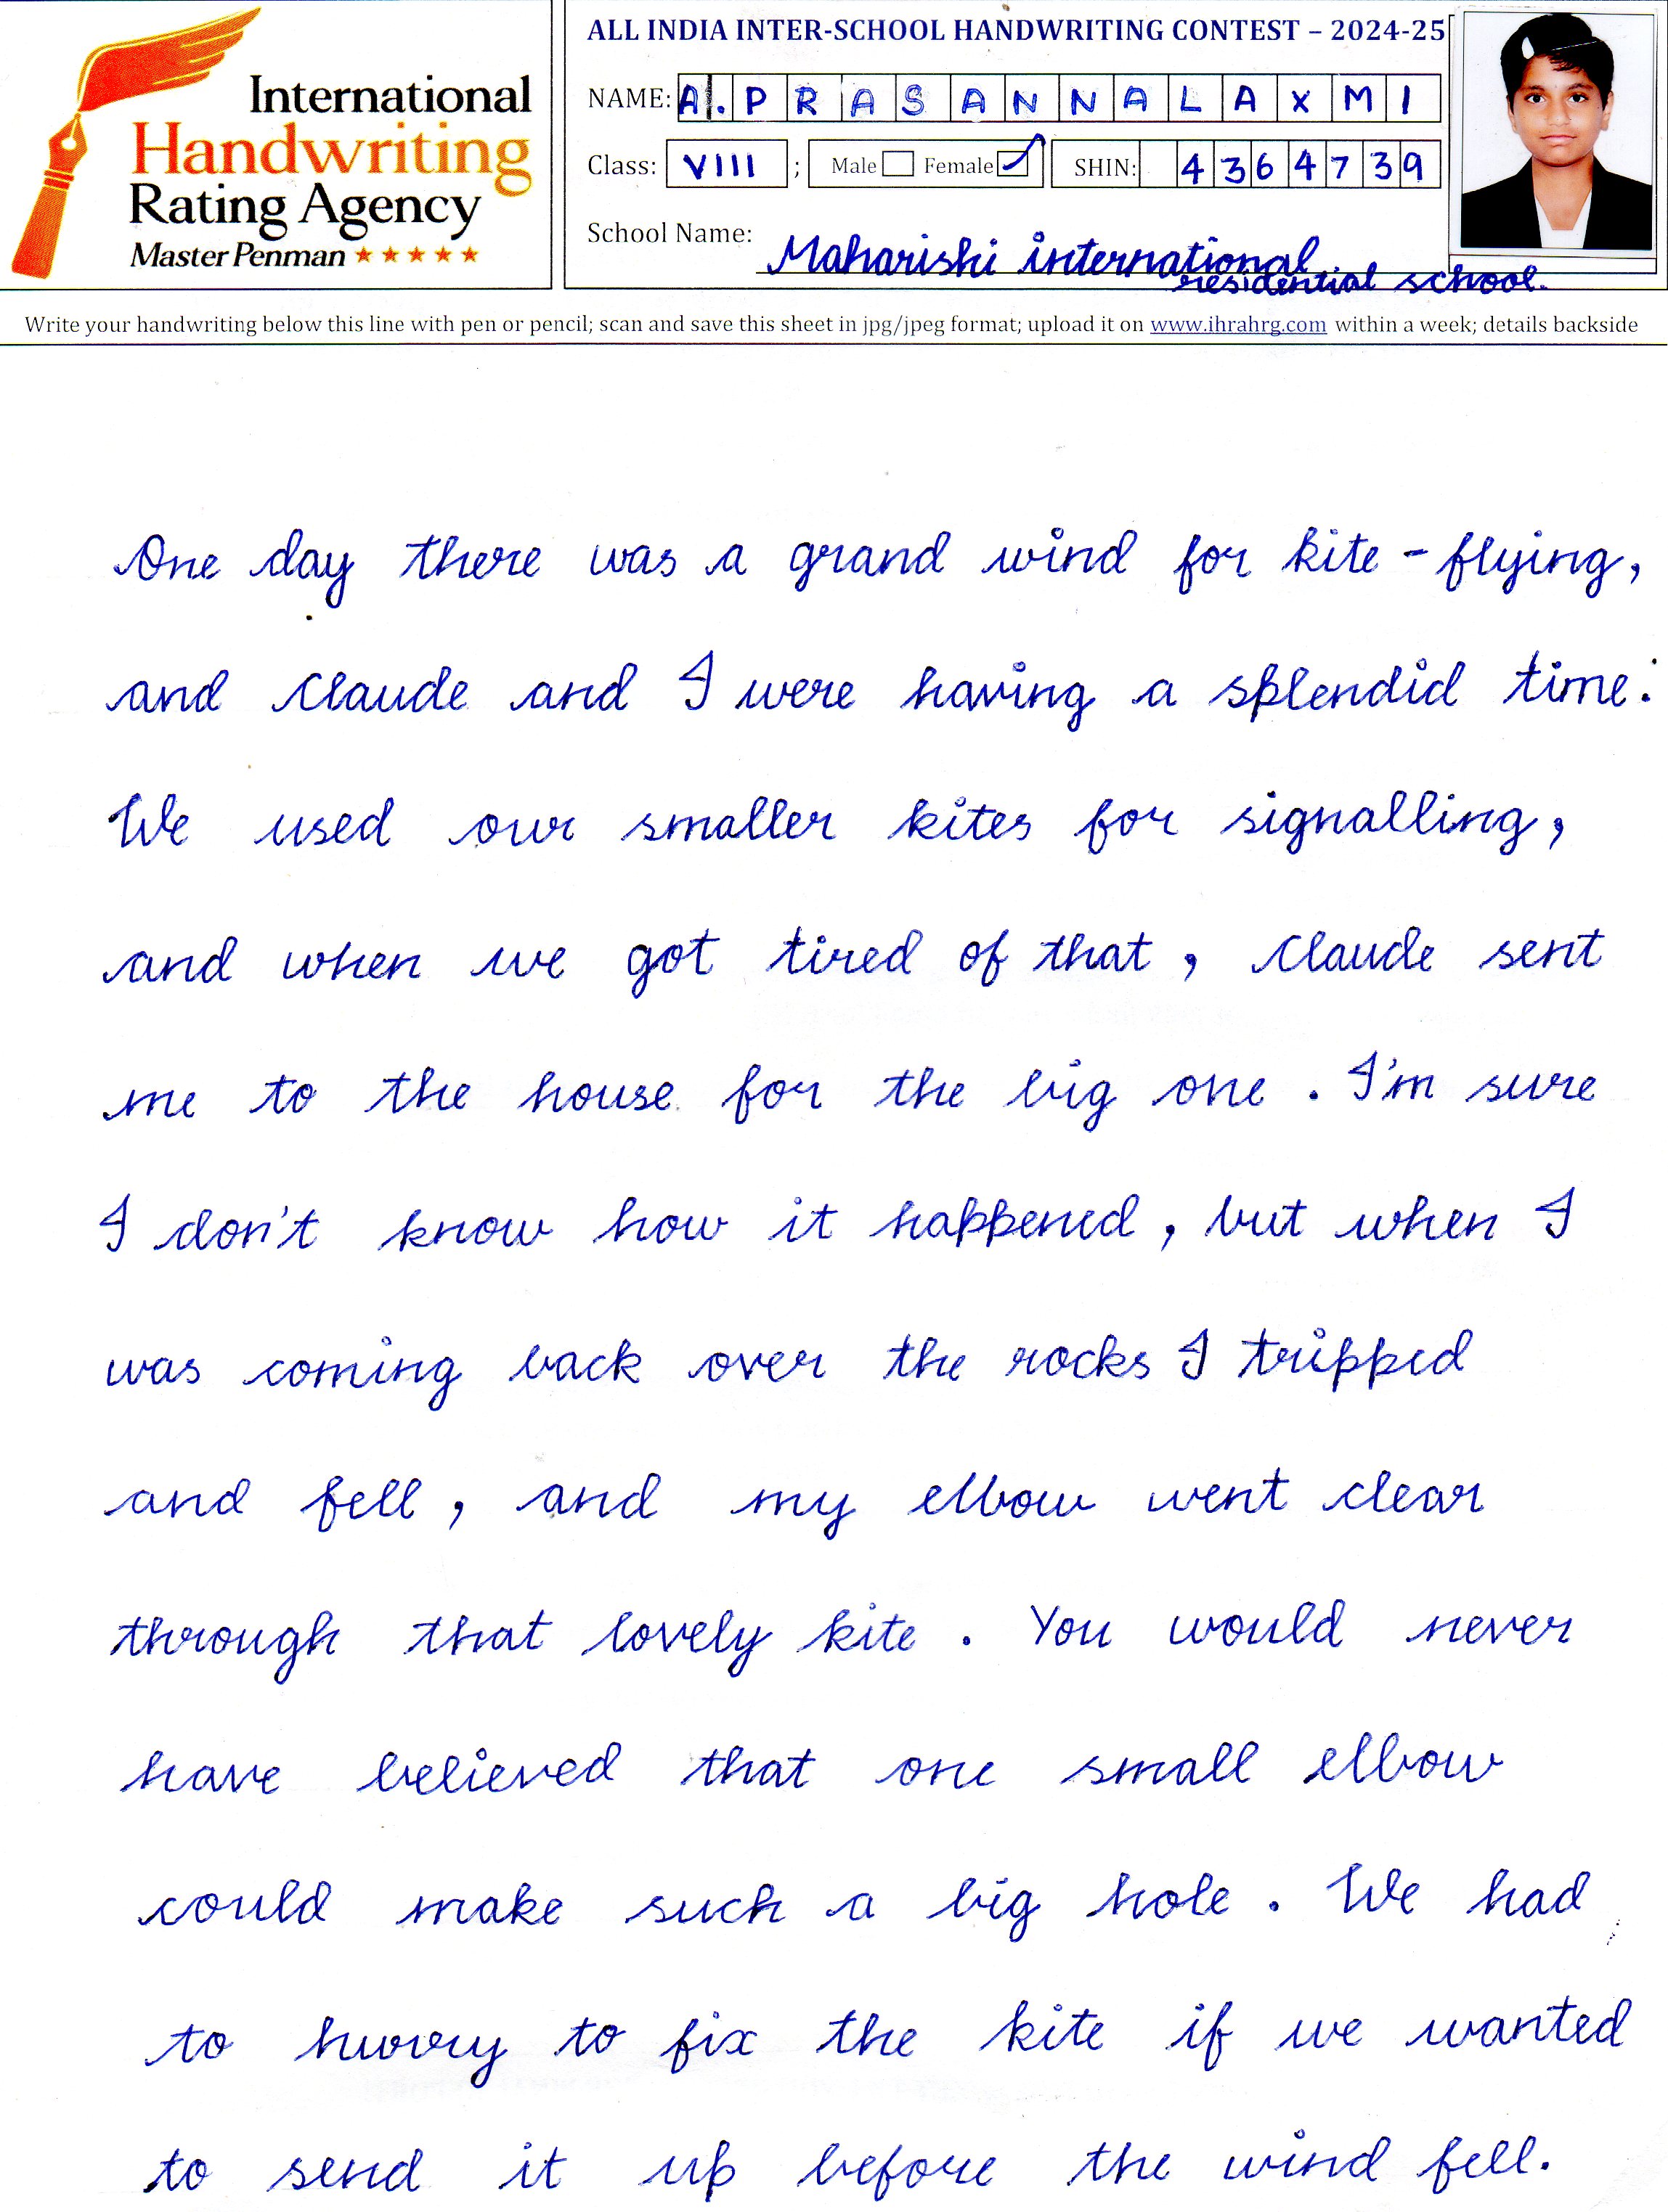 International
Handwriting
Rating Agency
Master Penman
ALL INDIA INTER-SCHOOL HANDWRITING CONTEST – 2024-25
NAME: A. PRASANNALAXMI
Class: VIII ; Male Female SHIN: 4364739
School Name: Maharishi international
residential school.
Write your handwriting below this line with pen or pencil; scan and save this sheet in jpg/jpeg format; upload it on www.ihrahrg.com within a week; details backside
One day there was a grand wind for kite-flying,
and Claude and I were having a splendid time.
We used our smaller kites for signalling,
and when we got tired of that, Claude sent
me to the house for the big one. I'm sure
I don't know how it happened, but when I
was coming back over the rocks I tripped
and fell, and my elbow went clear
through that lovely kite. You would never
have believed that one small elbow
could make such a big hole. We had
to hurry to fix the kite if we wanted
to send it up before the wind fell.